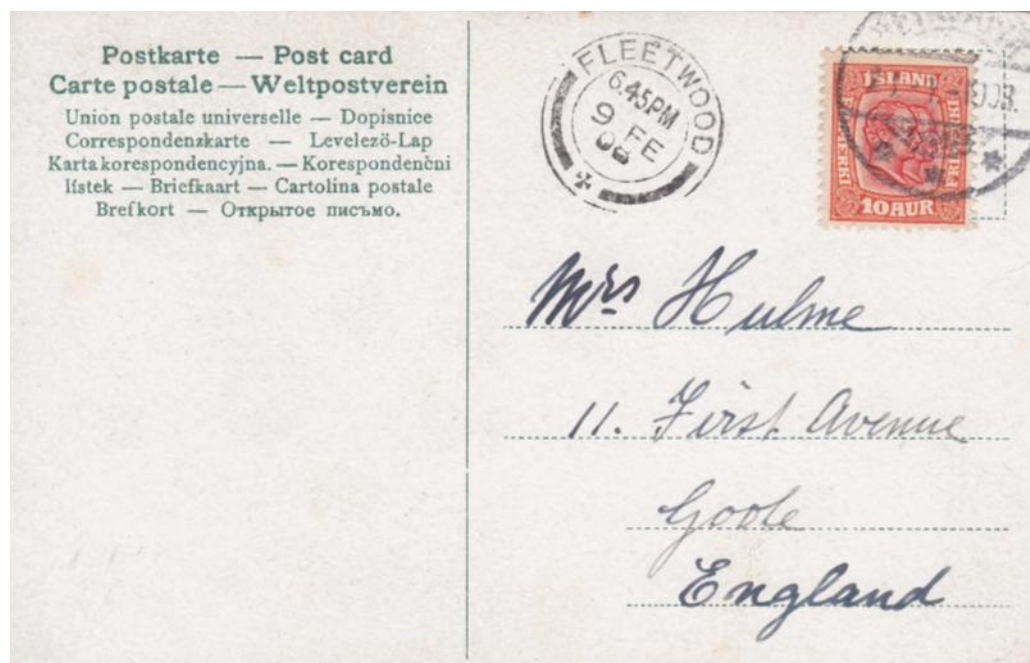 Postkarte — Post card
Carte postale — Weltpostverein
Union postale universelle — Dopisnice
Correspondenzkarte — Levelező-Lap
Karta korespondencyjna. — Korespondenčni
lístek — Briefkaart — Cartolina postale
Brefkort — Открытое письмо.
FLEETWOOD
6.45PM
9 FE
08
ISLAND
FRIMERKI FRIMERKI
10 AUR
Mrs Hulme
11. First Avenue
Goole
England